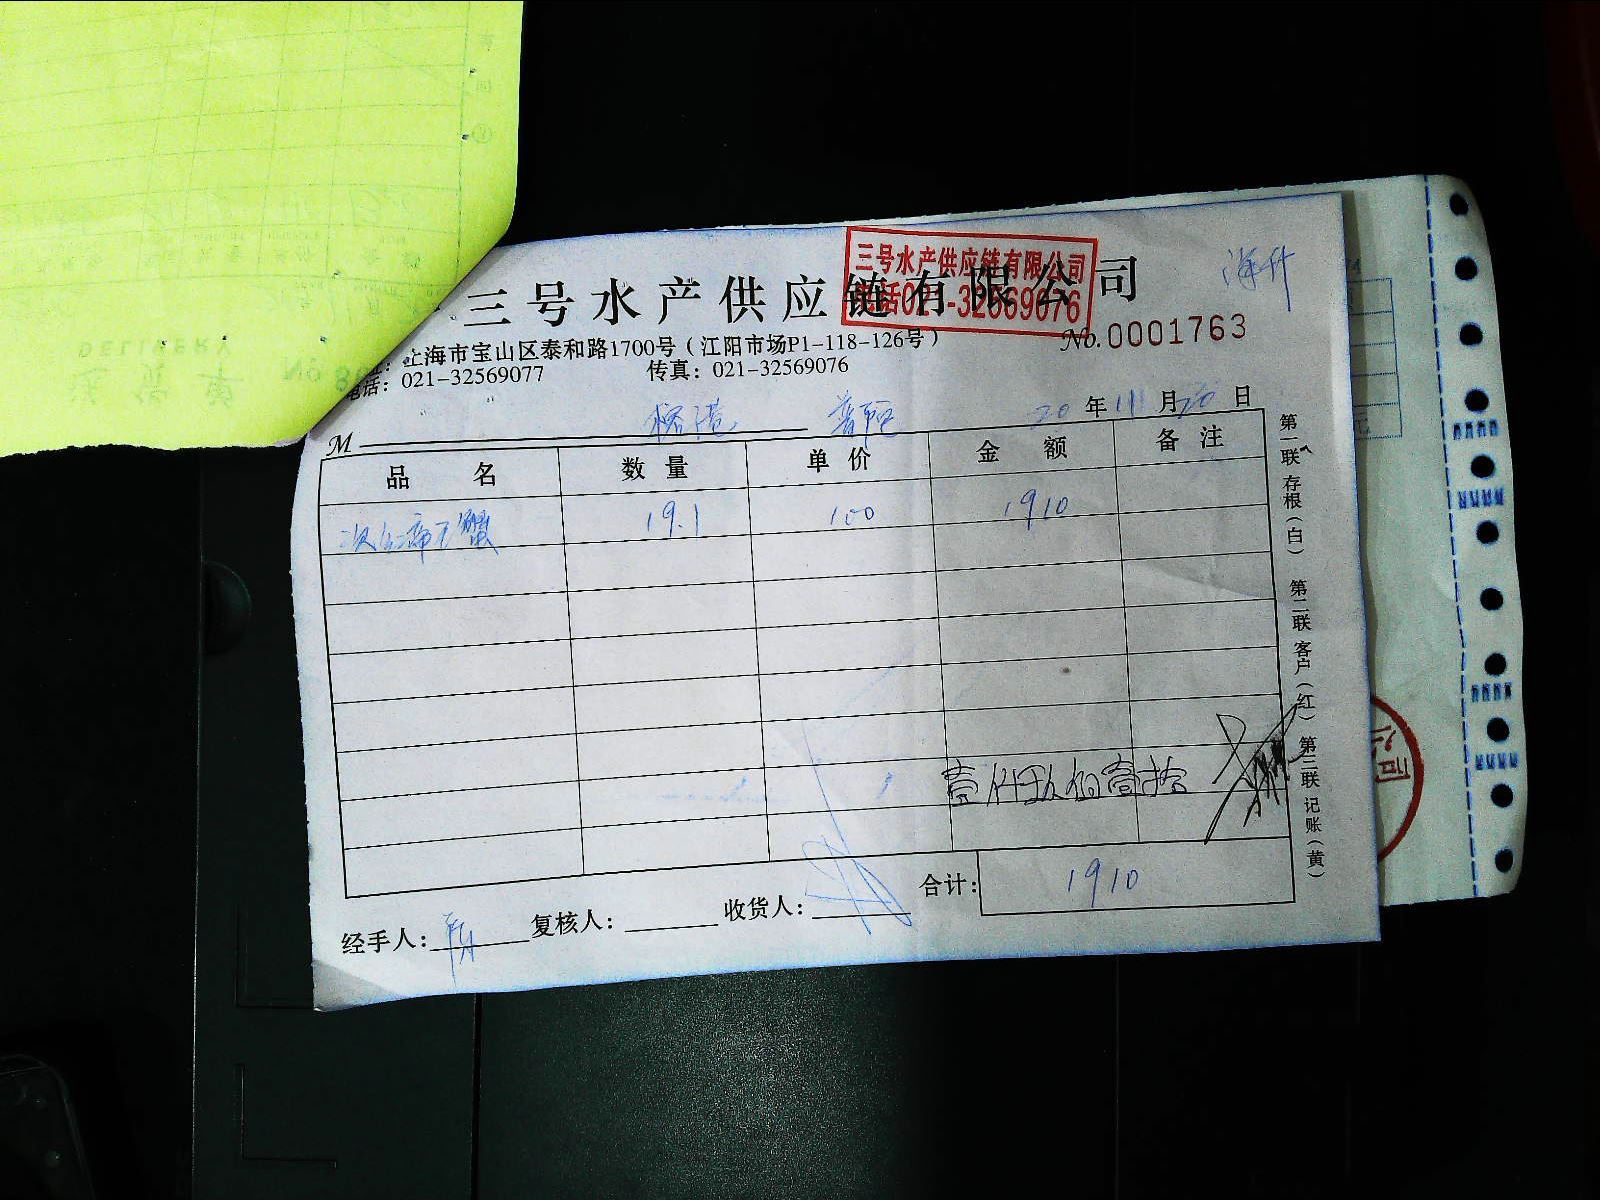 三号水产供应链有限公司
三号水产供应链有限公司
电话021-32569076
海升
No.0001763
址：上海市宝山区泰和路1700号（江阳市场P1-118-126号）
电话：021-32569077 传真：021-32569076
M 榕港 普陀 20年11月20日
品名 数量 单价 金额 备注
19.1 100 1910
壹仟玖佰壹拾
合计：1910
经手人： 复核人： 收货人：
第一联存根（白） 第二联客户（红） 第三联记账（黄）
DELIVERY
送货单
公司